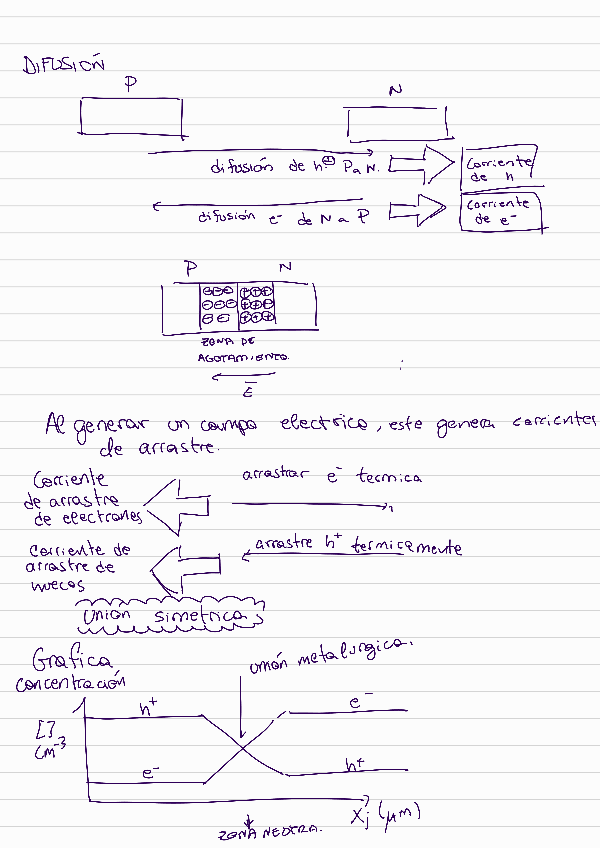 DIFUSIÓN
P
N
difusión de h⊕ P a N.
Corriente
de h
difusión e⁻ de N a P
Corriente
de e⁻
P N
⊖⊖⊖ ⊕⊕⊕
⊖⊖⊖ ⊕⊕⊕
⊖⊖ ⊕⊕⊕
ZONA DE
AGOTAMIENTO.
E
Al generar un campo electrico, este genera corrientes
de arrastre.
Corriente
de arrastre
de electrones
arrastrar e⁻ termica
Corriente de
arrastre de
huecos
arrastre h⁺ termicamente
Unión simetrica
Grafica
concentración
unión metalurgica.
[]
cm⁻³
h⁺
e⁻
e⁻
h⁺
Xj (μm)
ZONA NEUTRA.